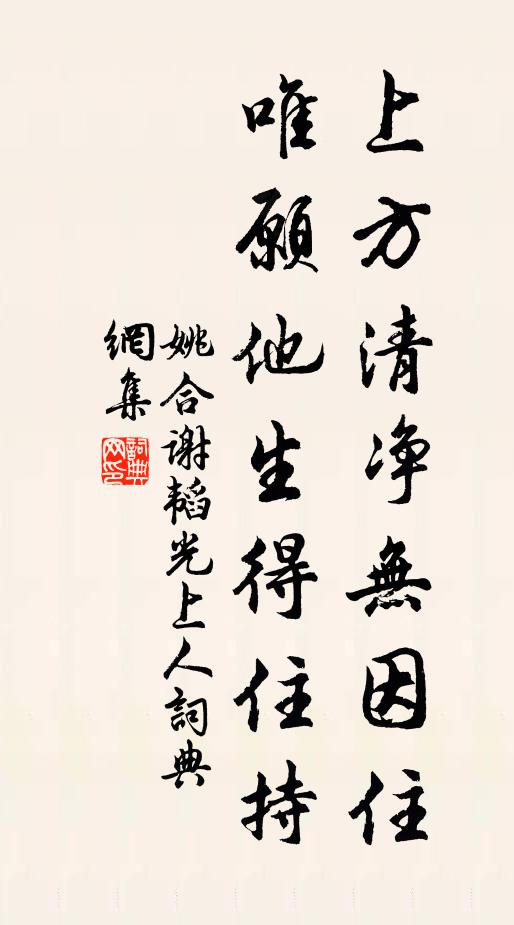 上方清净無因住
唯願他生得住持
姚合谢韬光上人詞典
網集
詞典网印